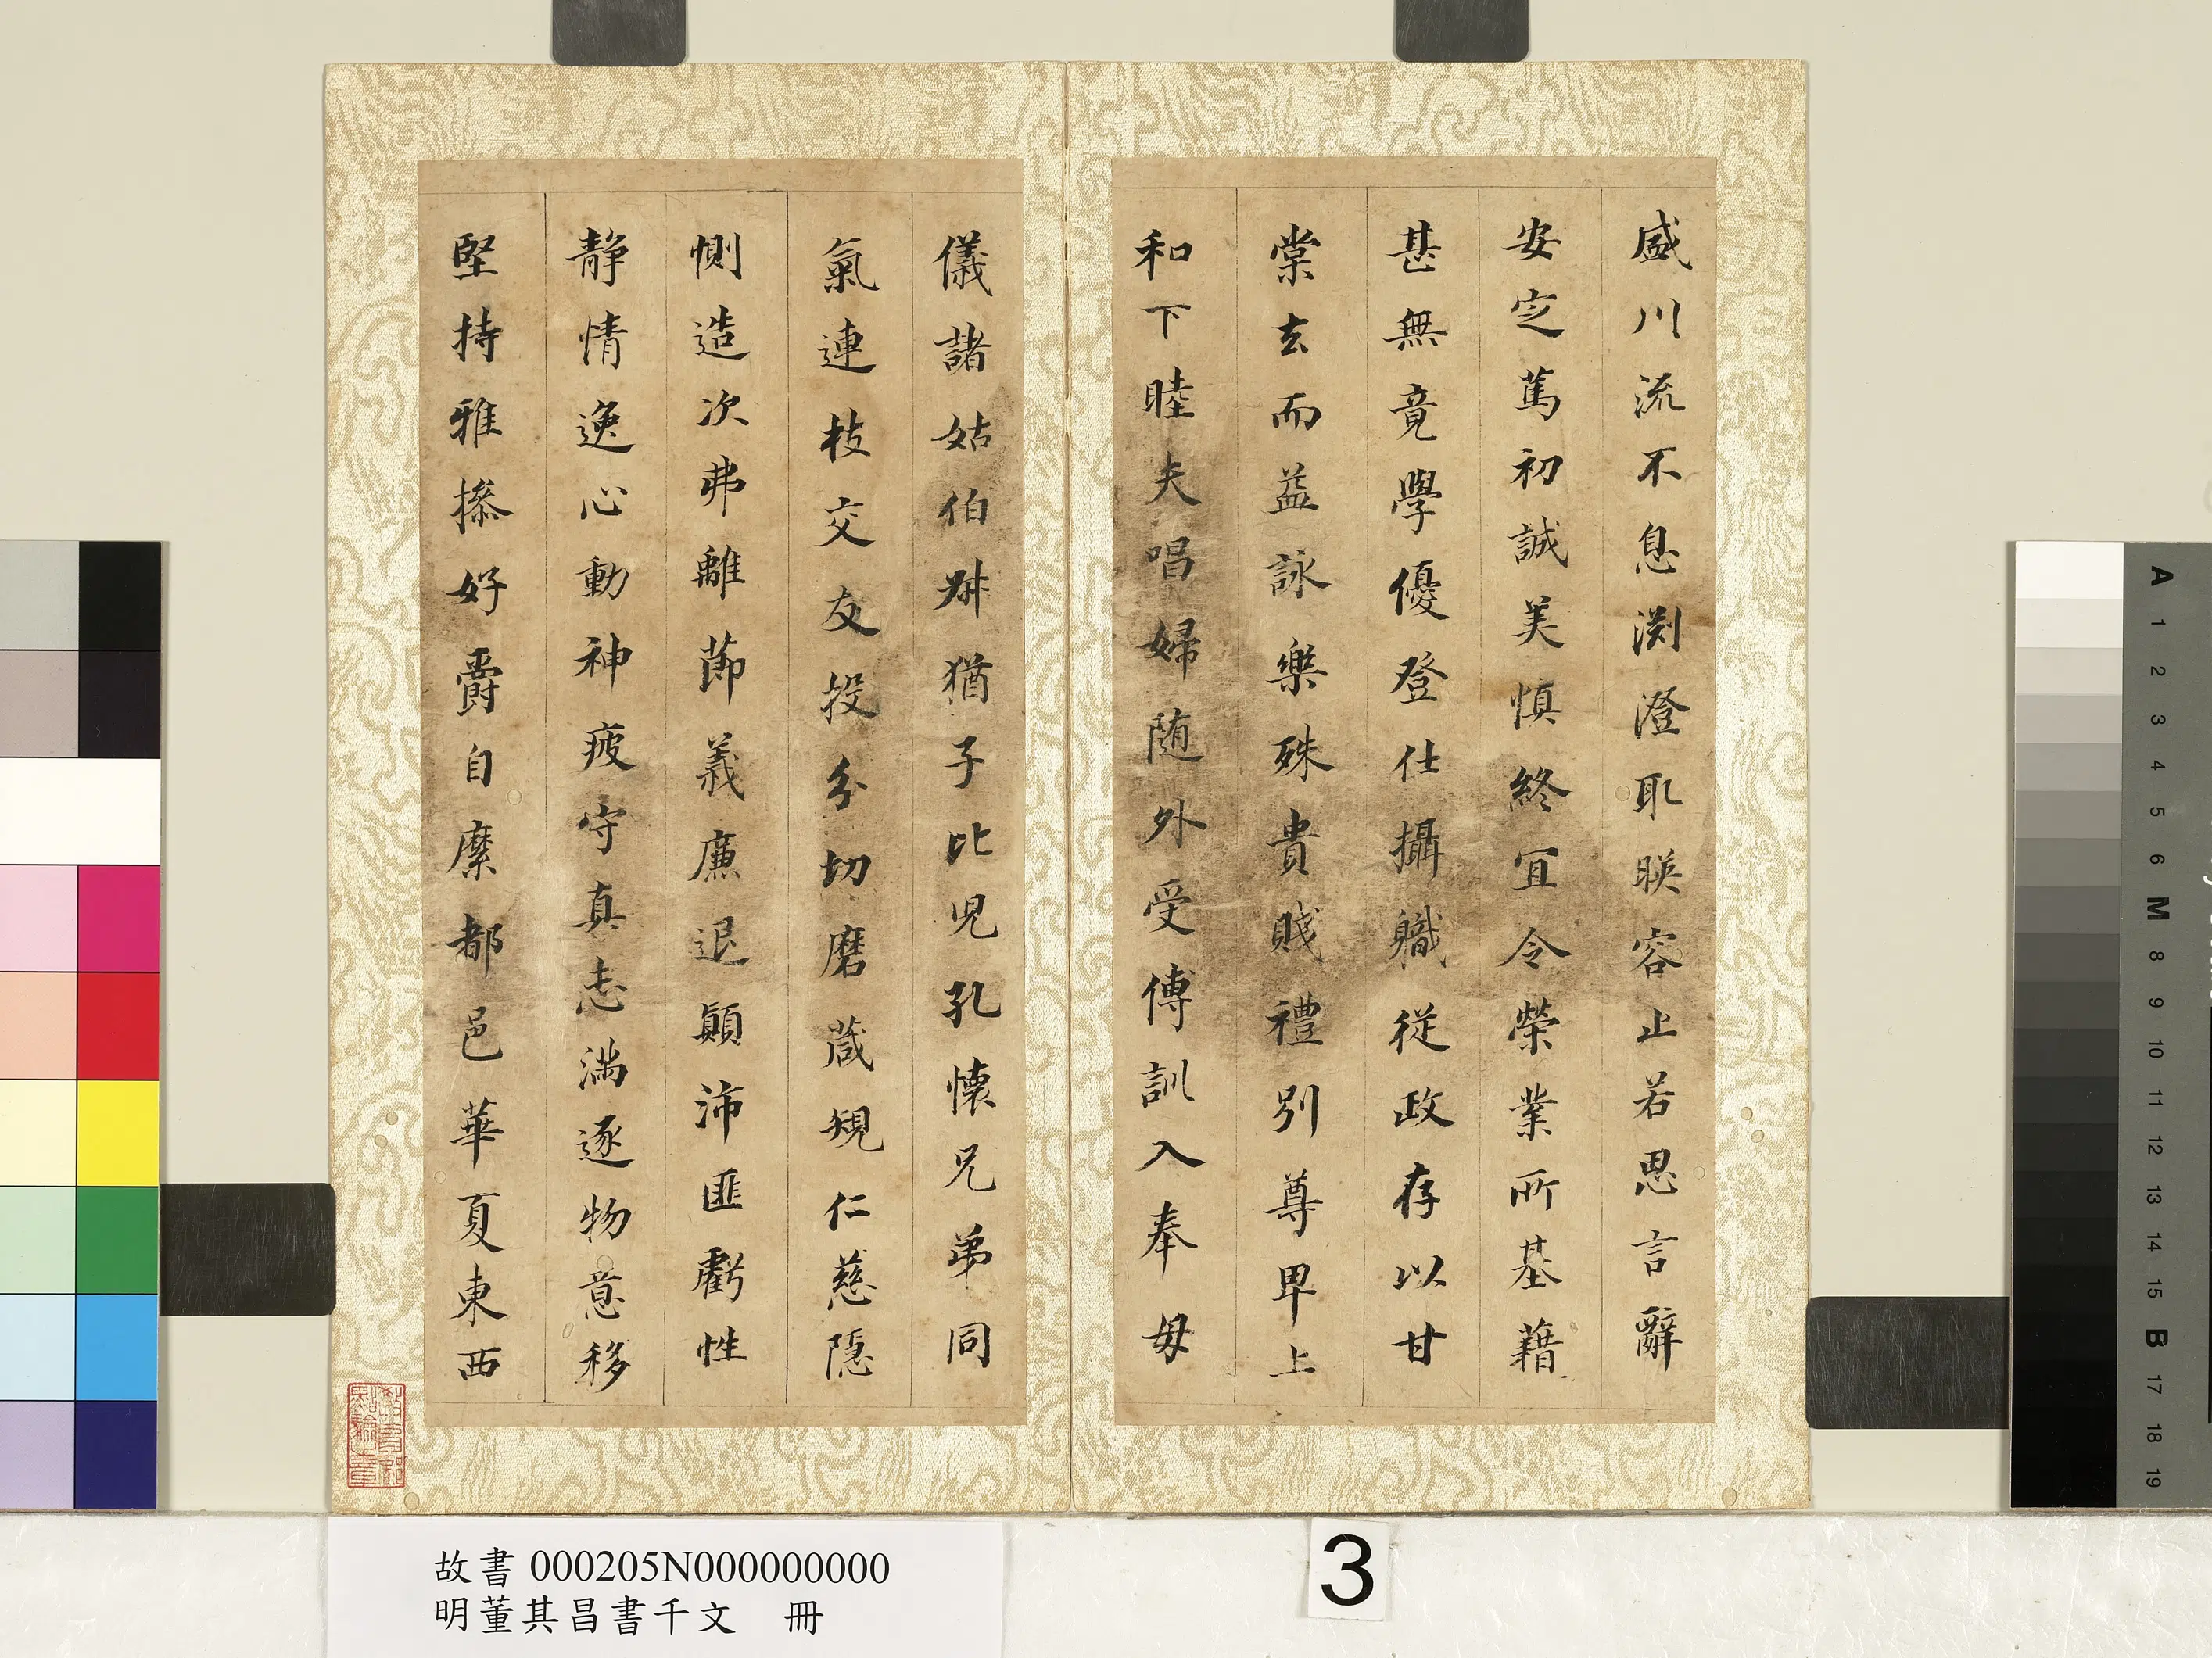 盛川流不息渕澄取暎容止若思言辭
安定篤初誠美慎終宜令榮業所基藉
甚無竟學優登仕攝職從政存以甘
棠去而益詠樂殊貴賤禮別尊卑上
和下睦夫唱婦随外受傅訓入奉母
儀諸姑伯叔猶子比兒孔懷兄弟同
氣連枝交友投分切磨葴規仁慈隱
惻造次弗離節義廉退顛沛匪虧性
静情逸心動神疲守真志満逐物意移
堅持雅操好爵自縻都邑華夏東西
教育部點驗之章
故書 000205N000000000
明董其昌書千文 冊
3
A 1 2 3 4 5 6 M 8 9 10 11 12 13 14 15 B 17 18 19